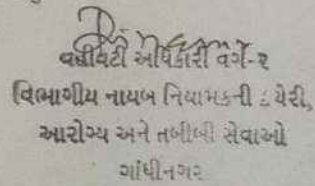 વહીવટી અધિકારી વર્ગ-૨
વિભાગીય નાયબ નિયામકની કચેરી,
આરોગ્ય અને તબીબી સેવાઓ
ગાંધીનગર